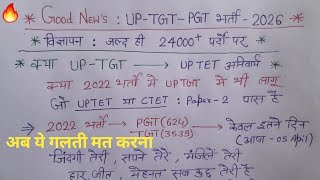 * GOOD NEW'S : UP-TGT-PGT भर्ती - 2026 *
* विज्ञापन : जल्द ही 24000+ पदों पर *
* क्या UP-TGT → UPTET अनिवार्य
क्या 2022 भर्ती में UPTGT में भी लागू
जो UPTET या CTET : Paper-2 पास है
⇒ 2022 भर्ती → PGT (624) TGT (3539) → केवल इतने दिन (आज - 05 April)
अब ये गलती मत करना
"जिंदगी तेरी, सपने तेरे, मंजिलें तेरी
हार जीत, मेहनत सब कुछ तेरी है